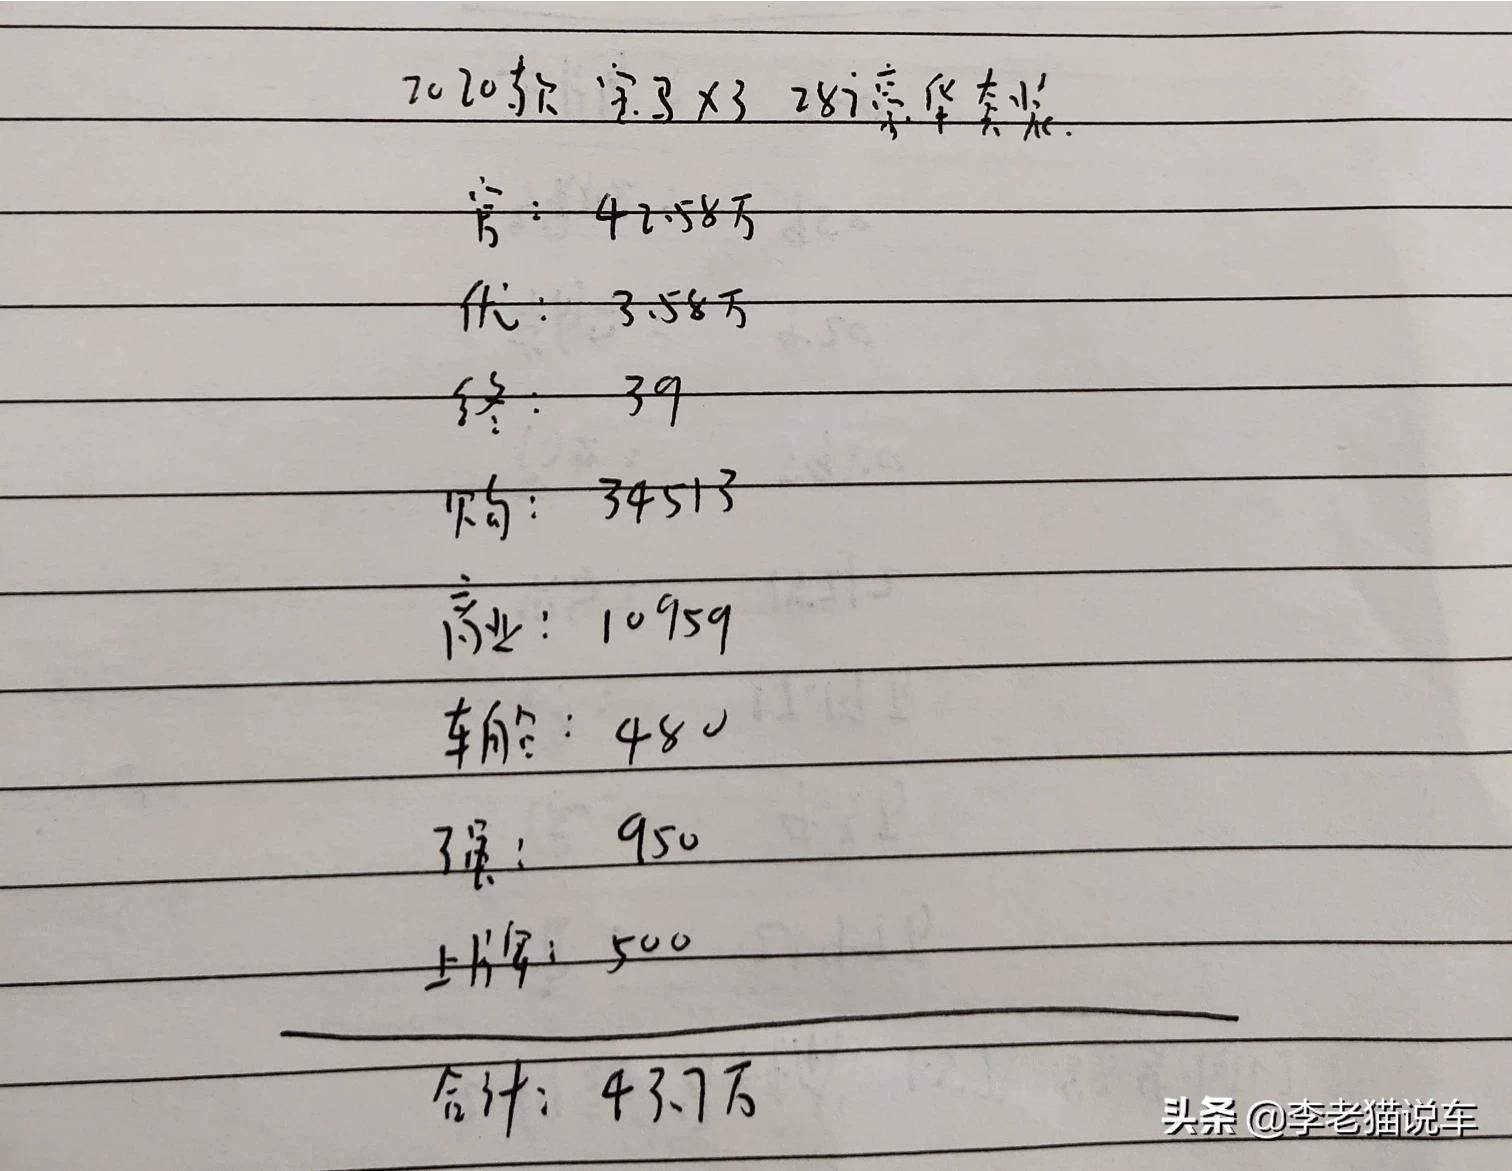 2020款 宝马X3 28i豪华套装.
官: 42.58万
优: 3.58万
终: 39
购: 34513
商业: 10959
车船: 480
强: 950
上牌: 500
合计: 43.7万
头条 @李老猫说车